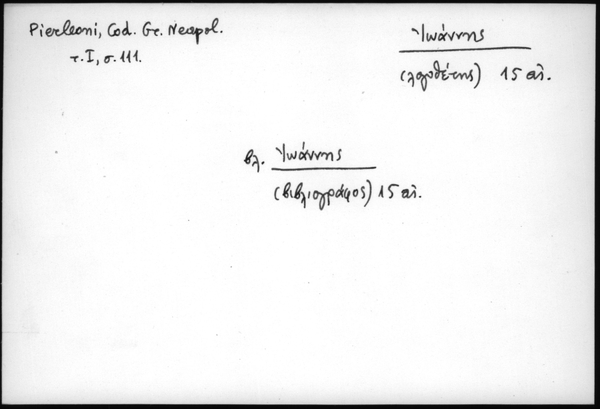 Pierleoni, Cod. Gr. Neapol.
τ. I, σ. 111.
Ἰωάννης
(λογοθέτης) 15 αἰ.
βλ. Ἰωάννης
(βιβλιογράφος) 15 αἰ.